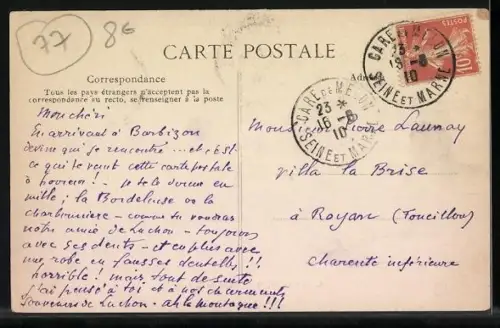 77 86
CARTE POSTALE
Correspondance
Tous les pays étrangers n'acceptent pas la
correspondance au recto, se renseigner à la poste
POSTES
10
GARE DE MELUN
23 *
16 -8
10
SEINE ET MARNE
GARE DE MELUN
23 *
16 -8
10
SEINE ET MARNE
Mon chéri
En arrivant à Barbizon
devine qui je rencontre... et c'est
ce qui te vaut cette carte postale
à horreur! - je te le donne en
mille; la Bordeleuse ou la
charbonnière - comme tu voudras
notre amie de Luchon - toujours
avec ses dents - et en plus avec
une robe en fausses dentelles!!!
horrible! mais tout de suite
j'ai pensé à toi et à nos charmants
souvenirs de Luchon - ah la montagne!!!
Monsieur Pierre Launay
villa la Brise
à Royan (Foncillon)
Charente inférieure